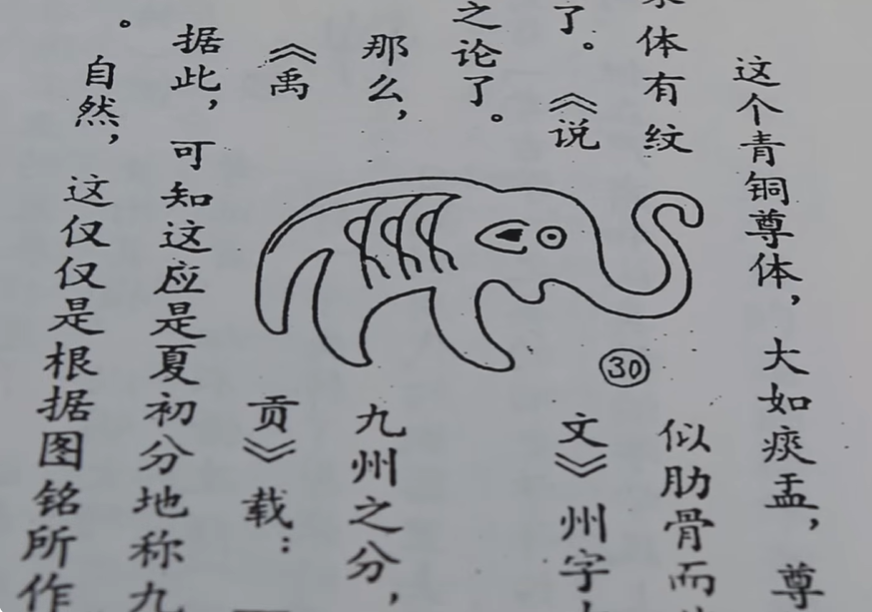 这个青铜尊体，大如痰盂，尊
体有纹
似肋骨而
了。《说
文》州字
之论了。
那么，
九州之分，
《禹
贡》载：
据此，可知这应是夏初分地称九
。自然，这仅仅是根据图铭所作
30